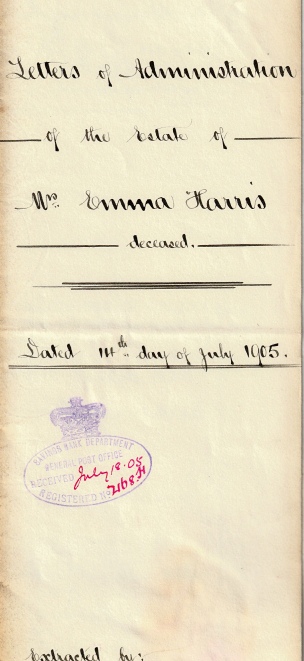 Letters of Administration
of the Estate of
Mrs. Emma Harris
deceased.
Dated 14th day of July 1905.
SAVINGS BANK DEPARTMENT
GENERAL POST OFFICE
RECEIVED July 18.05
REGISTERED No
Extracted by: